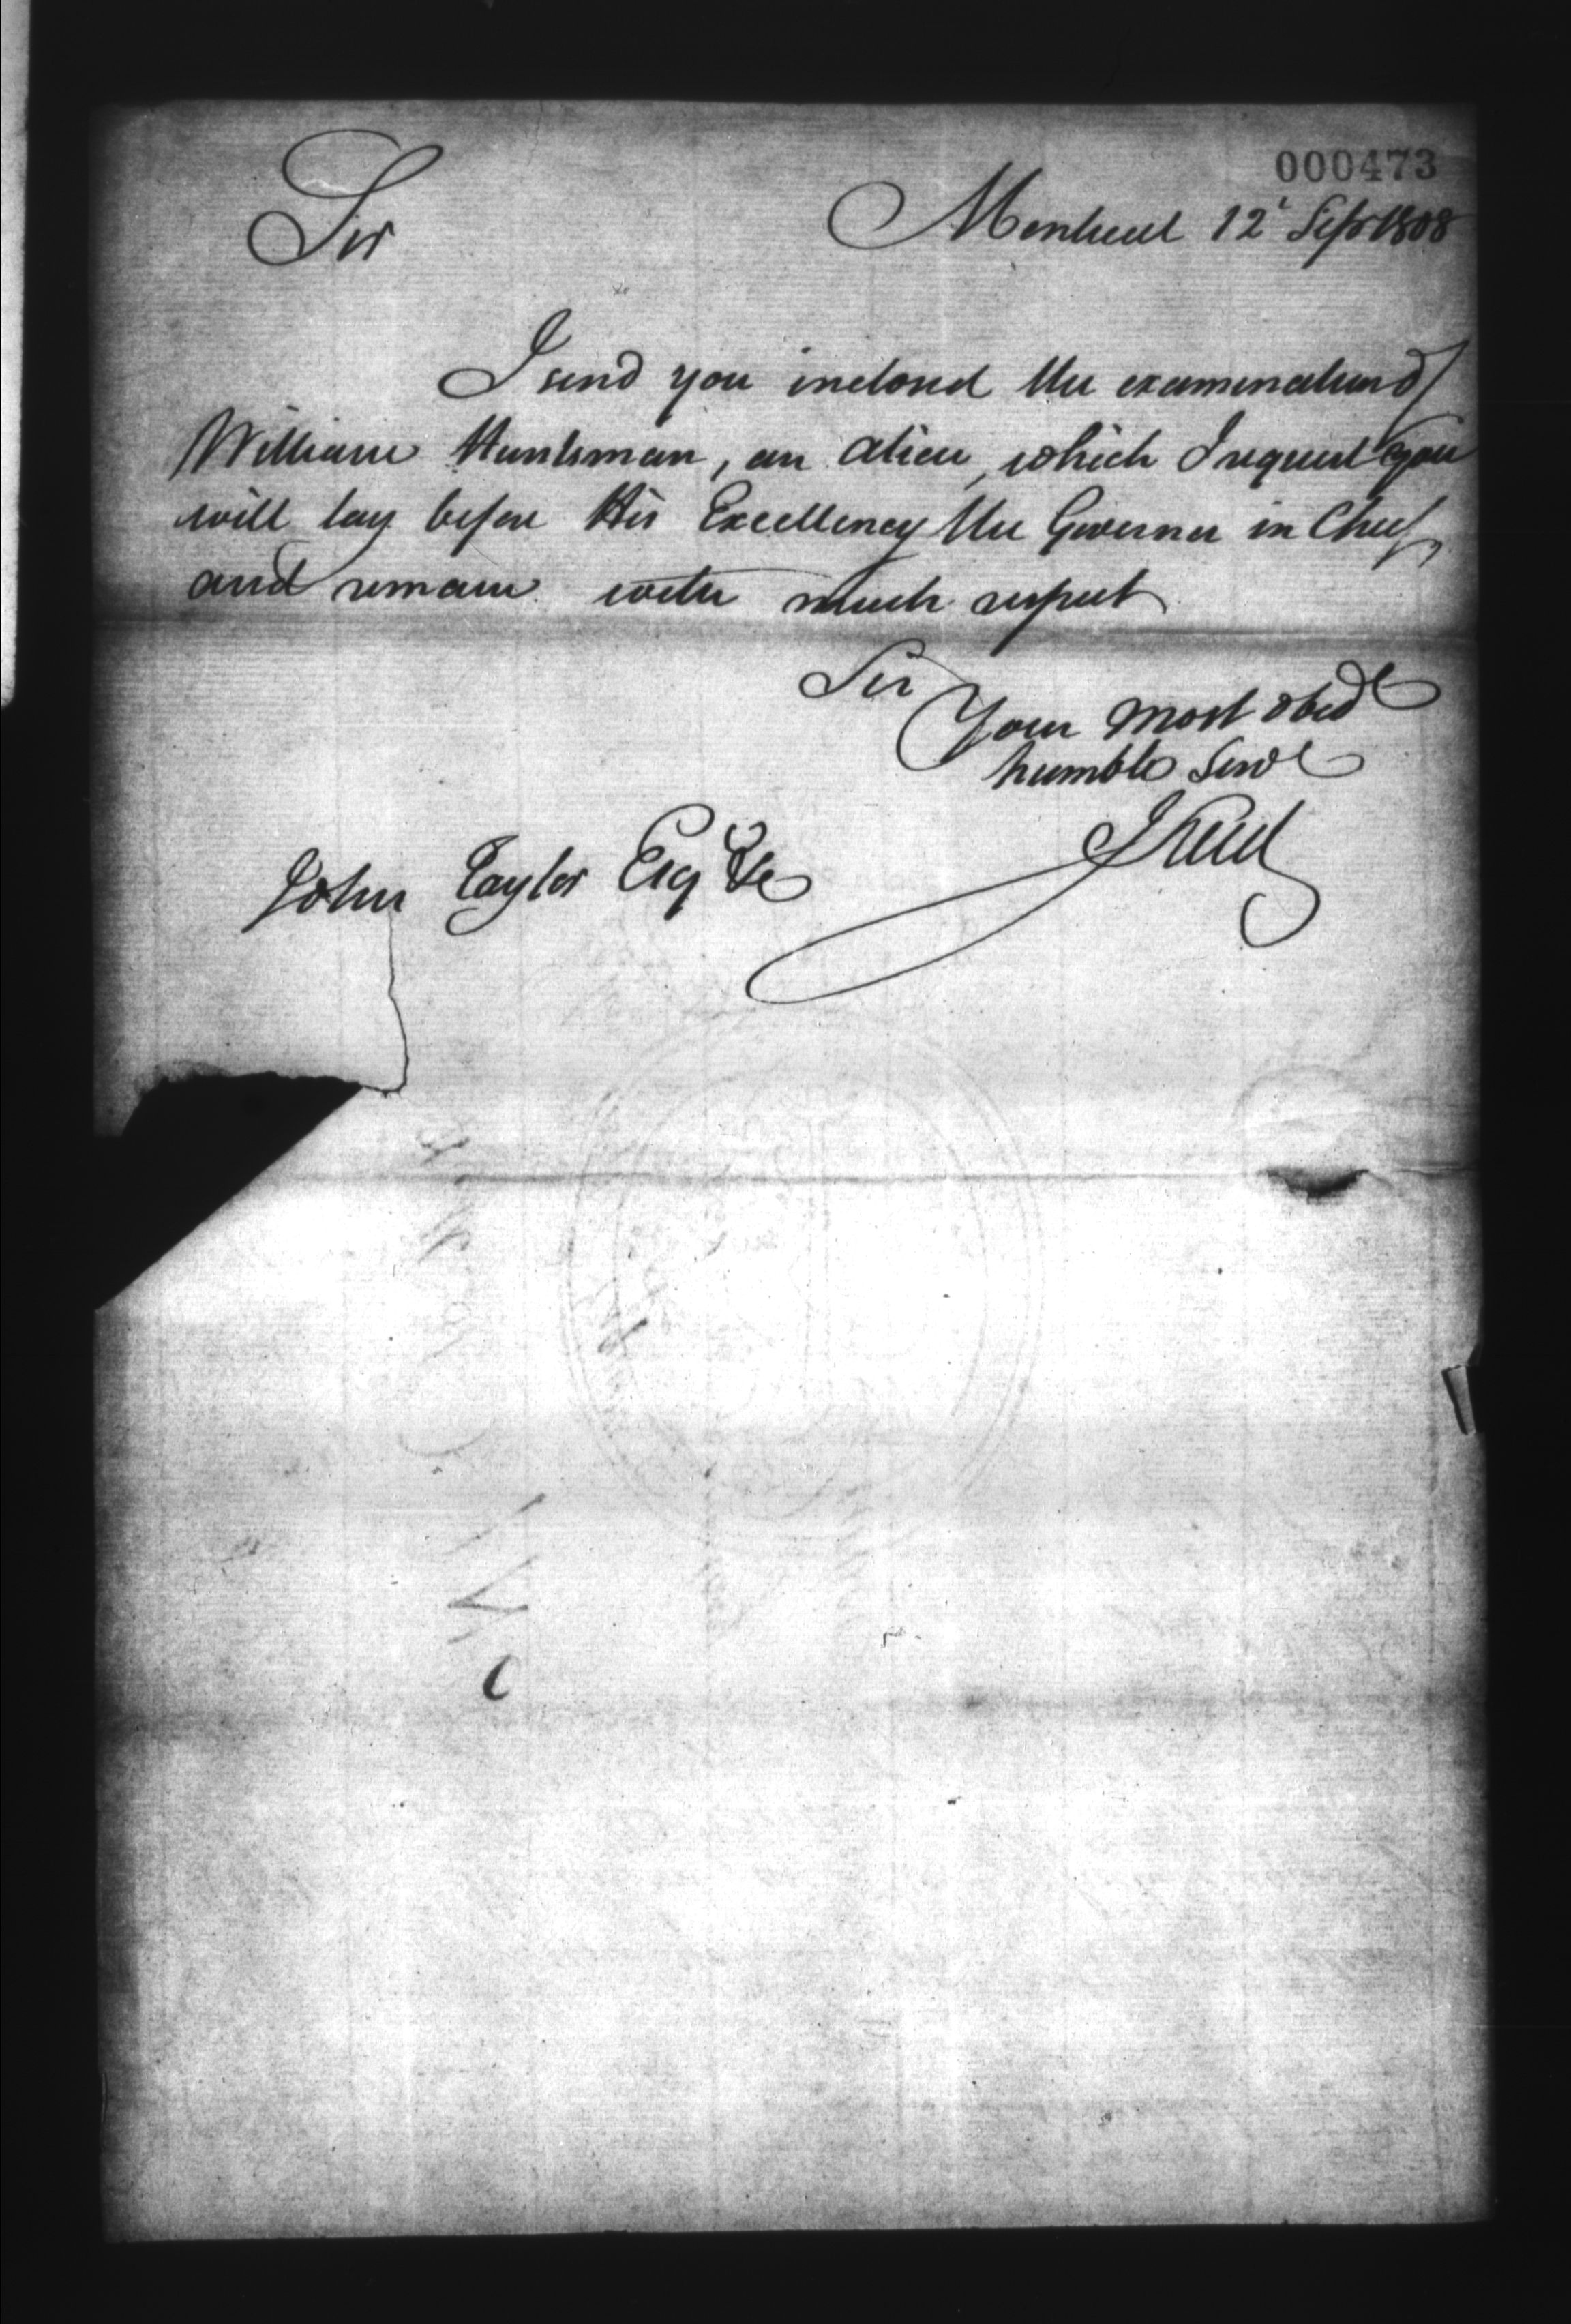 000473
Sir
Montreal 12t Sepr 1808
I send you inclosed the examination of
William Huntsman, an alien, which I request you
will lay before His Excellency the Governor in Chief,
and remain with much respect
Sir
Your most obedt
humble Servt
J Reid
John Taylor Esqre &c